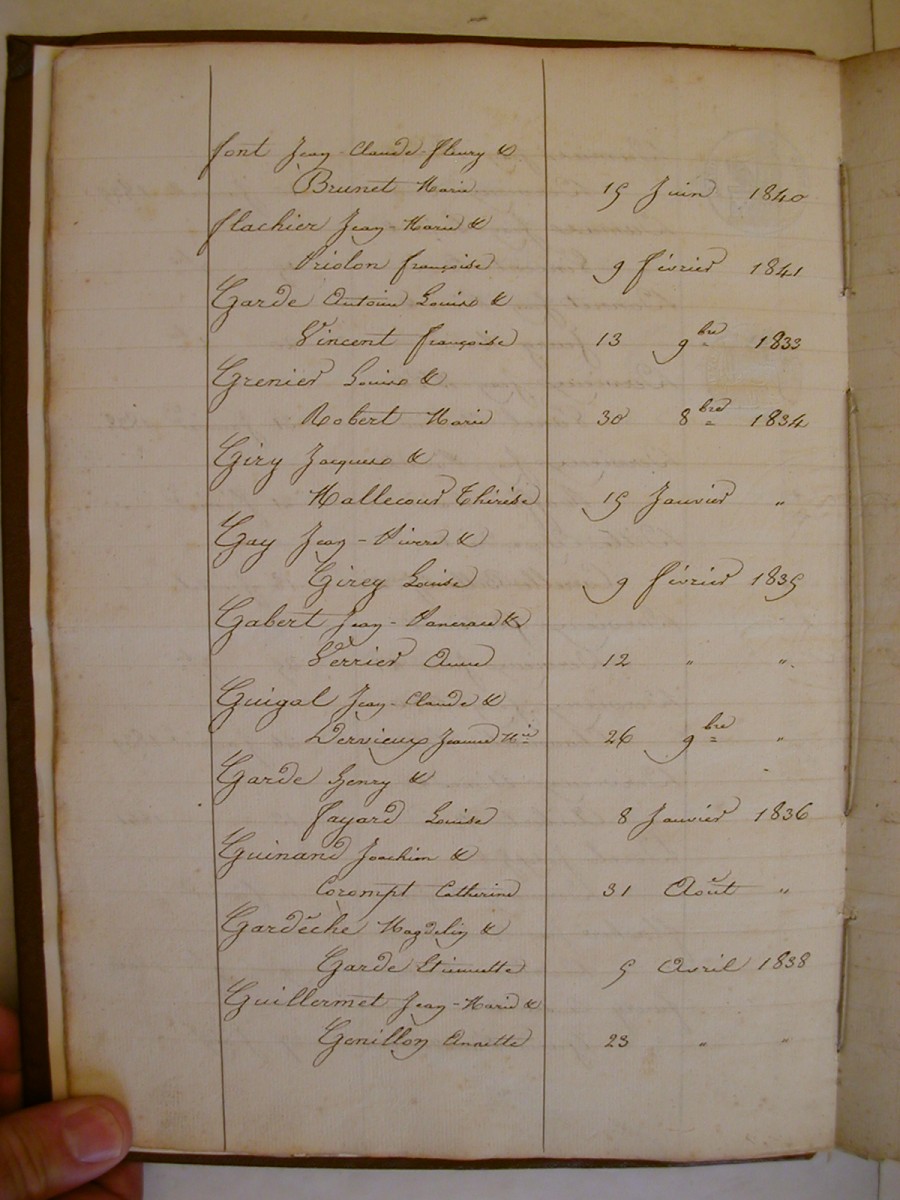 font Jean-Claude-fleury &
Brunet Marie 15 Juin 1840
flachier Jean-Marie &
Priolon françoise 9 février 1841
Garde Antoine Louis &
Vincent françoise 13 9bre 1833
Grenier Louis &
Robert Marie 30 8bre 1834
Giry Jacques &
Mallecour Thérèse 15 Janvier "
Gay Jean-Pierre &
Girey Louise 9 février 1835
Gabert Jean-Pancrace &
Verrier Anne 12 " "
Guigal Jean-Claude &
Dervieux Jeanne Mie 26 9bre "
Garde henry &
fayard Louise 8 Janvier 1836
Guinand Joachim &
Corompt Catherine 31 Août "
Gardêche Magdelin &
Garde Etiennette 5 Avril 1838
Guillermet Jean-Marie &
Genillon Annette 23 " "